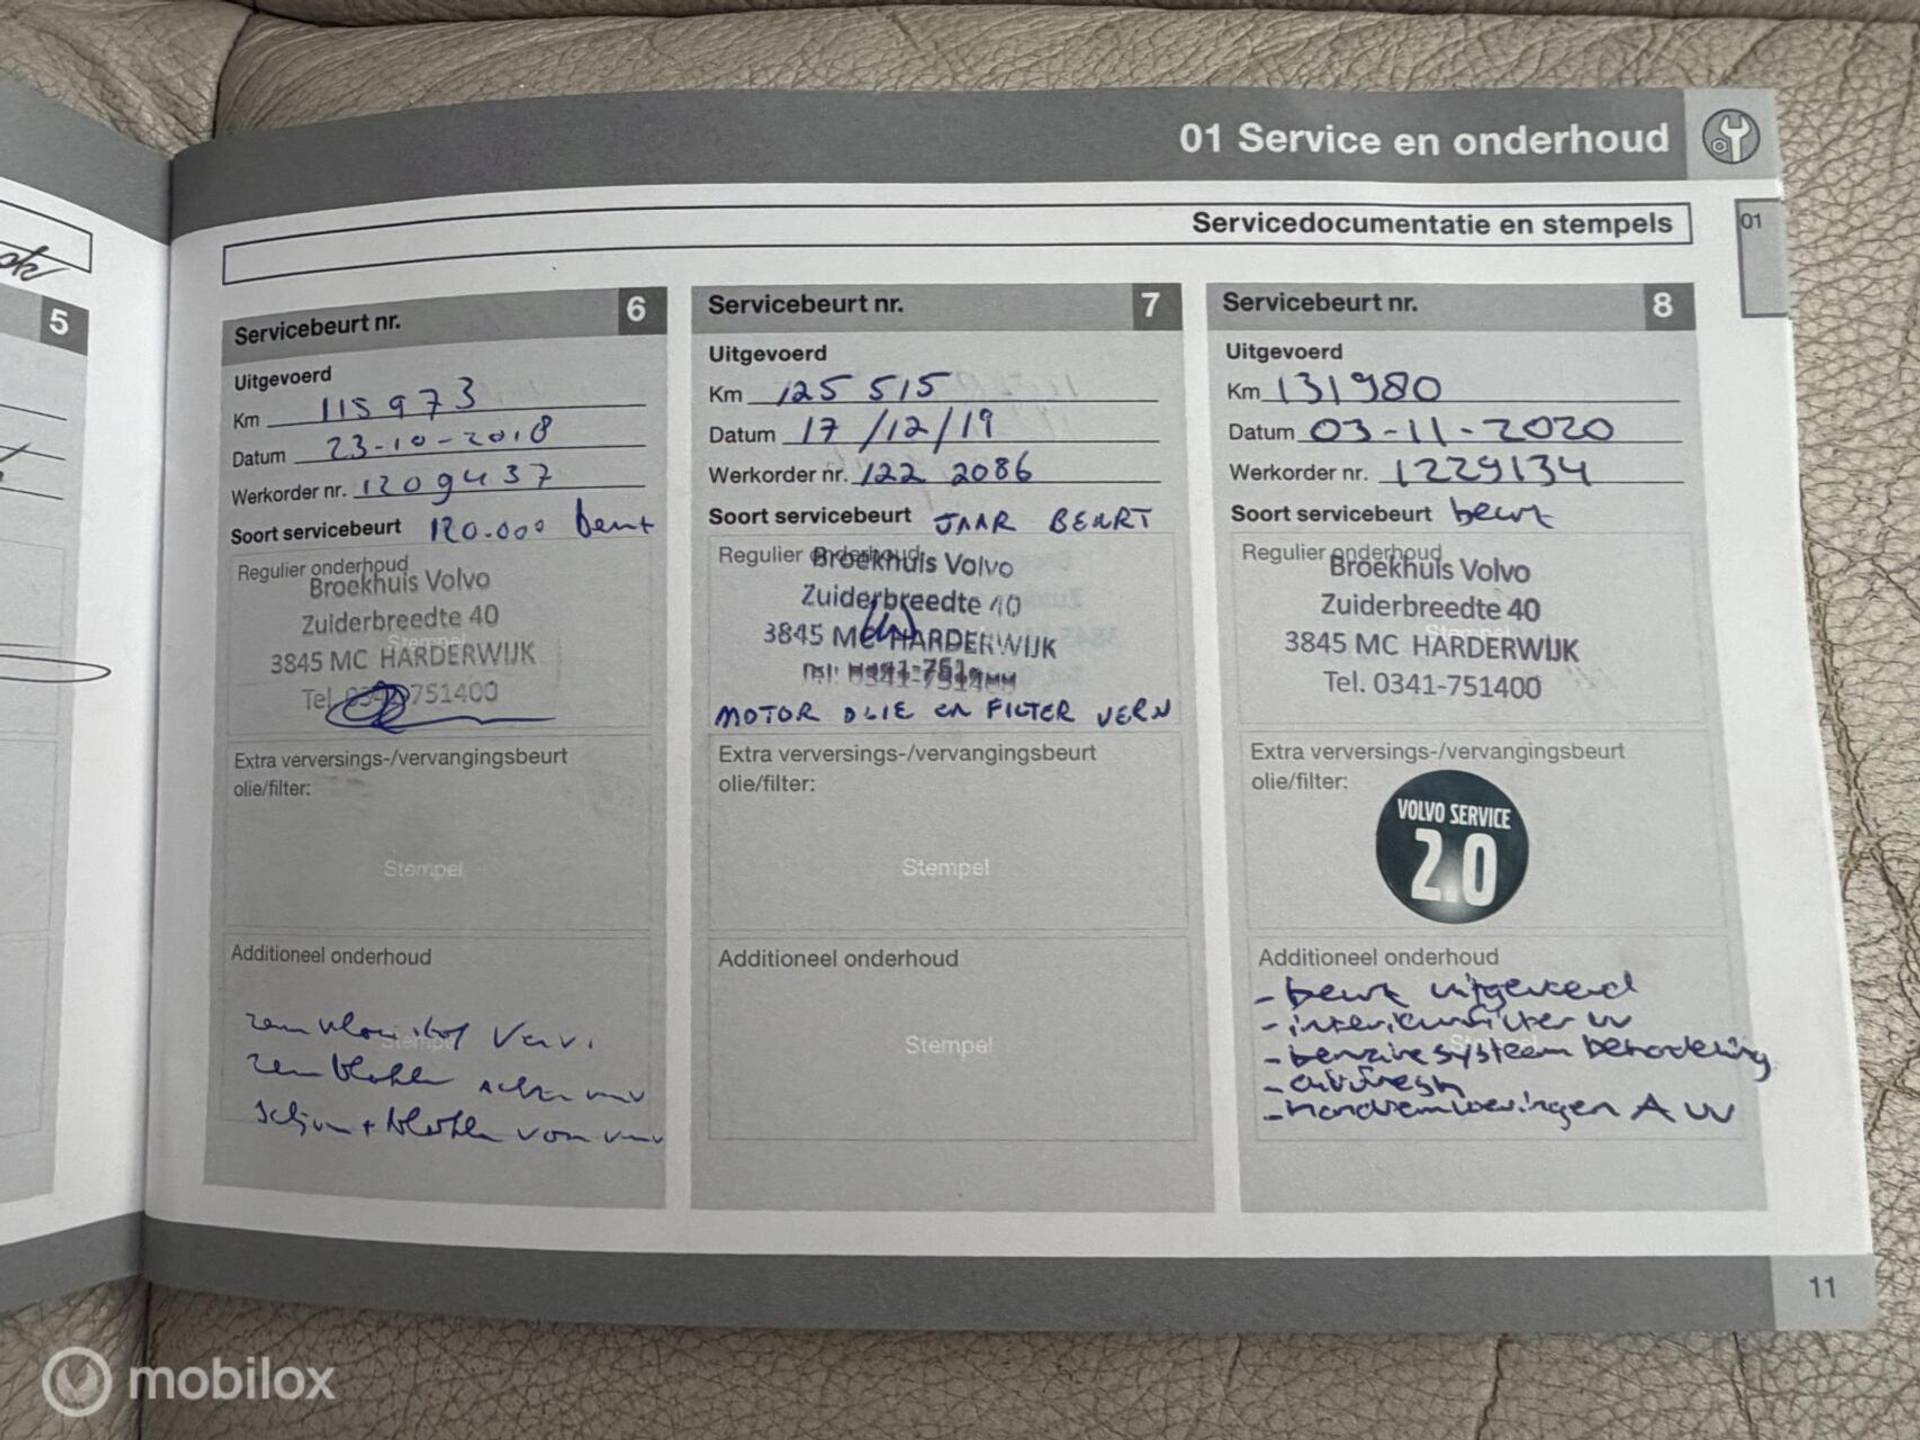 01 Service en onderhoud
Servicedocumentatie en stempels
01
ok
5
Servicebeurt nr. 6
Uitgevoerd
Km 115973
Datum 23-10-2018
Werkorder nr. 1209437
Soort servicebeurt 120.000 beurt
Regulier onderhoud
Broekhuis Volvo
Zuiderbreedte 40
Stempel
3845 MC HARDERWIJK
Tel. 0341-751400
Extra verversings-/vervangingsbeurt
olie/filter:
Stempel
Additioneel onderhoud
remvloeistof Verv.
Stempel
remblokken achter
schijven + blokken voor
Servicebeurt nr. 7
Uitgevoerd
Km 125 515
Datum 17/12/19
Werkorder nr. 122 2086
Soort servicebeurt JAAR BEURT
Regulier onderhoud
Broekhuis Volvo
Zuiderbreedte 40
3845 MC HARDERWIJK
MOTOR OLIE en FILTER VERN
Extra verversings-/vervangingsbeurt
olie/filter:
Stempel
Additioneel onderhoud
Stempel
Servicebeurt nr. 8
Uitgevoerd
Km 131980
Datum 03-11-2020
Werkorder nr. 1229134
Soort servicebeurt beurt
Regulier onderhoud
Broekhuis Volvo
Zuiderbreedte 40
Stempel
3845 MC HARDERWIJK
Tel. 0341-751400
Extra verversings-/vervangingsbeurt
olie/filter:
VOLVO SERVICE
2.0
Additioneel onderhoud
- beurt uitgevoerd
- interieurfilter vv
- benzine systeem behandeling
- airfresh
- handremvoeringen A vv
11
mobilox